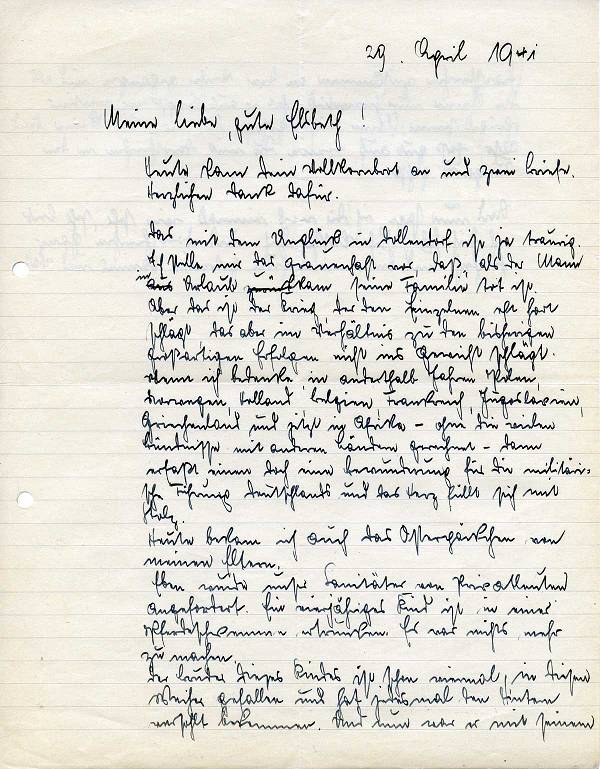 29. April 1941
Meine liebe, gute Elsbeth!
Heute kam Dein Vollkornbrot an und zwei Briefe.
Herzlichen Dank dafür.
Das mit dem Unglück in Dollendorf ist ja traurig.
Ich stelle mir das grauenhaft vor, daß, als der Mann
in Urlaub kam seine Familie tot ist.
Aber das ist der Krieg, der den Einzelnen oft hart
schlägt das aber im Verhältnis zu den bisherigen
großartigen Erfolgen nicht ins Gewicht schlägt.
Wenn ich bedenke, in anderthalb Jahren Polen,
Norwegen Holland, Belgien Frankreich, Jugoslavien,
Griechenland und jetzt in Afrika – ohne die vielen
Bündnisse mit anderen Ländern gerechnet – dann
erfaßt einen doch eine Bewunderung für die militäri-
sche Führung Deutschlands und das Herz füllt sich mit
Stolz.
Heute bekam ich auch das Osterpäckchen von
meinen Eltern.
Eben wurde unser Sanitäter von Privatleuten
angefordert. Ein vierjähriges Kind ist in einer
Pferdeschwemme ertrunken. Es war nichts mehr
zu machen.
Der Bruder dieses Kindes ist schon viermal in diesen
Weiher gefallen und hat jedesmal den Hintern
versohlt bekommen. Und nun war er mit seinem